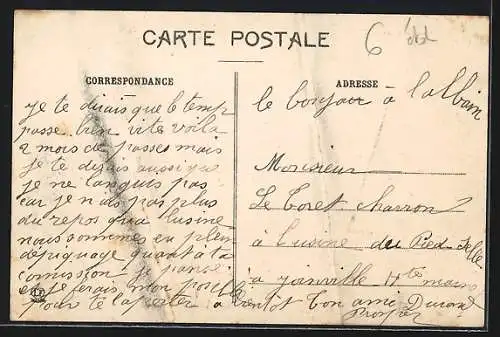 CARTE POSTALE
6
CORRESPONDANCE
ADRESSE
je te dirais que le temp
passe bien vite voila
2 mois de passes mais
je te dirais aussi que
je ne languis pas
car je n'ais pas plus
du repos qua lusine
nous sommes en plein
depiquage quant a ta
comission je
en je ferais mon
pour te laporter a bientot ton ami Durand
Prosper
le bonjour à
Monsieur
Le Toret charron
à Lusine du Pied Selle
à Joinville Hte marne